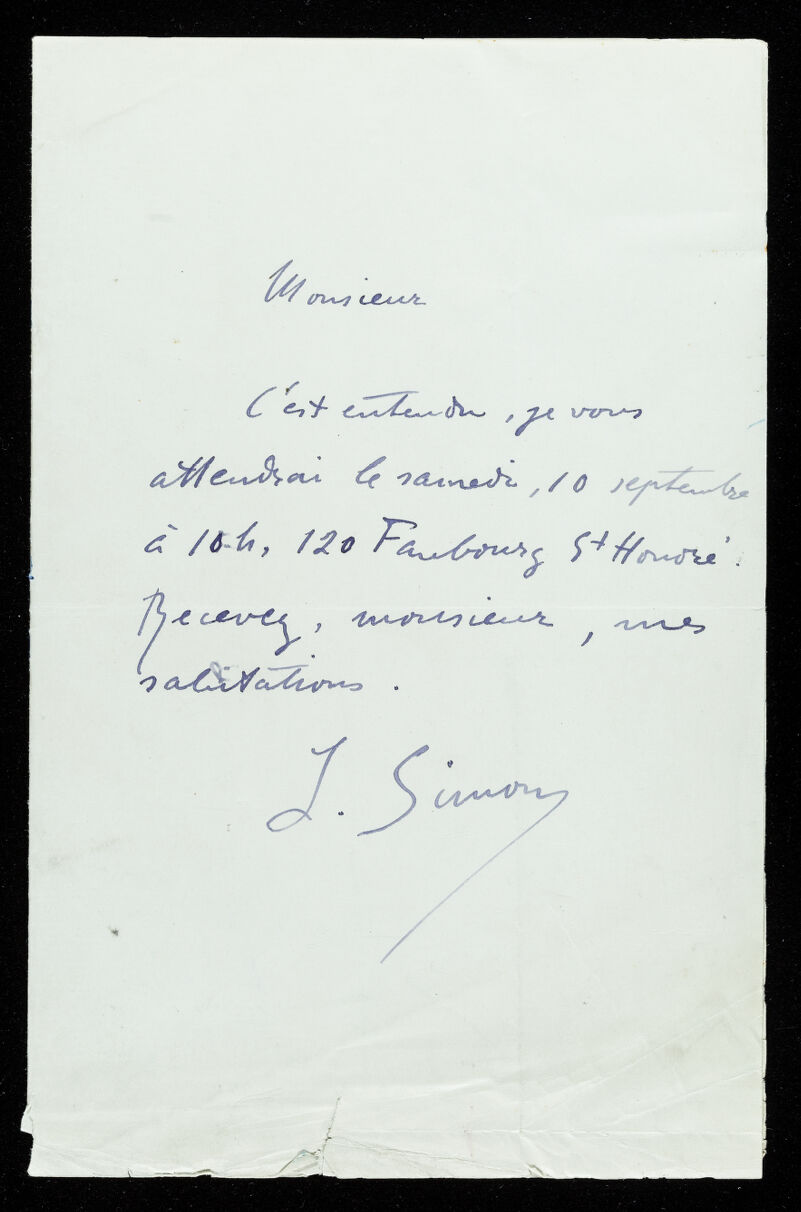 Monsieur
C'est entendu, je vous
attendrai le samedi, 10 septembre
à 10 h, 120 Faubourg St Honoré.
Recevez, monsieur, mes
salutations.
L. Simon